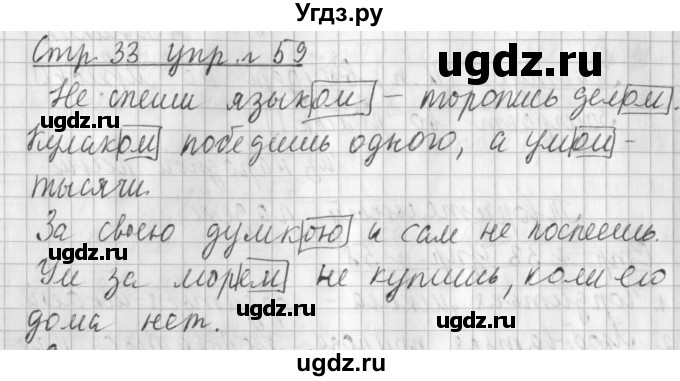 Угдз.ру
Стр. 33 упр. 59
Не спеши языком – торопись делом.
Кулаком победишь одного, а умом –
тысячи.
За своею думкою и сам не поспеешь.
Ум за морем не купишь, коли его
дома нет.
ugdz.ru
ugdz.ru
ugdz.ru
ugdz.ru
ugdz.ru
ugdz.ru
ugdz.ru
ugdz.ru